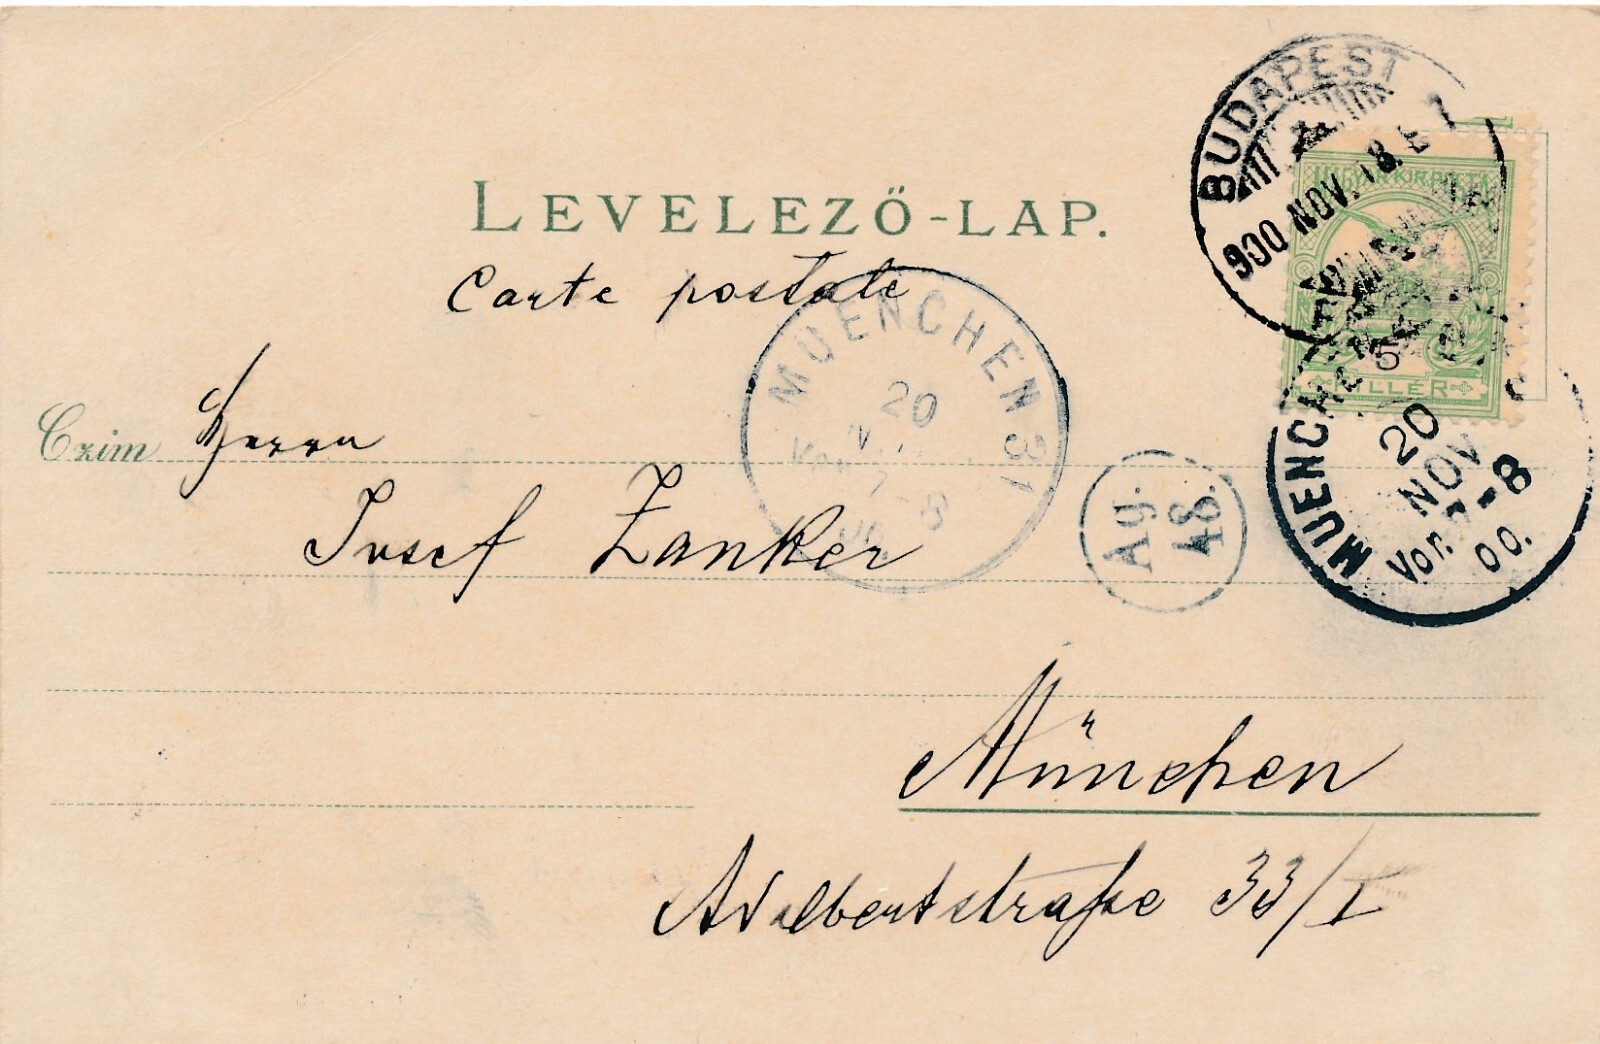 LEVELEZŐ-LAP.
Carte postale
Czim
Herrn
Josef Zanker
München
Adalbertstraße 33/I
BUDAPEST
900 NOV. 18.
MAGYAR KIR. POSTA
5
FILLÉR
MUENCHEN 31
20
7-8
Ag.
48.
MUENCHEN
20
NOV
Vor. 7-8
00.